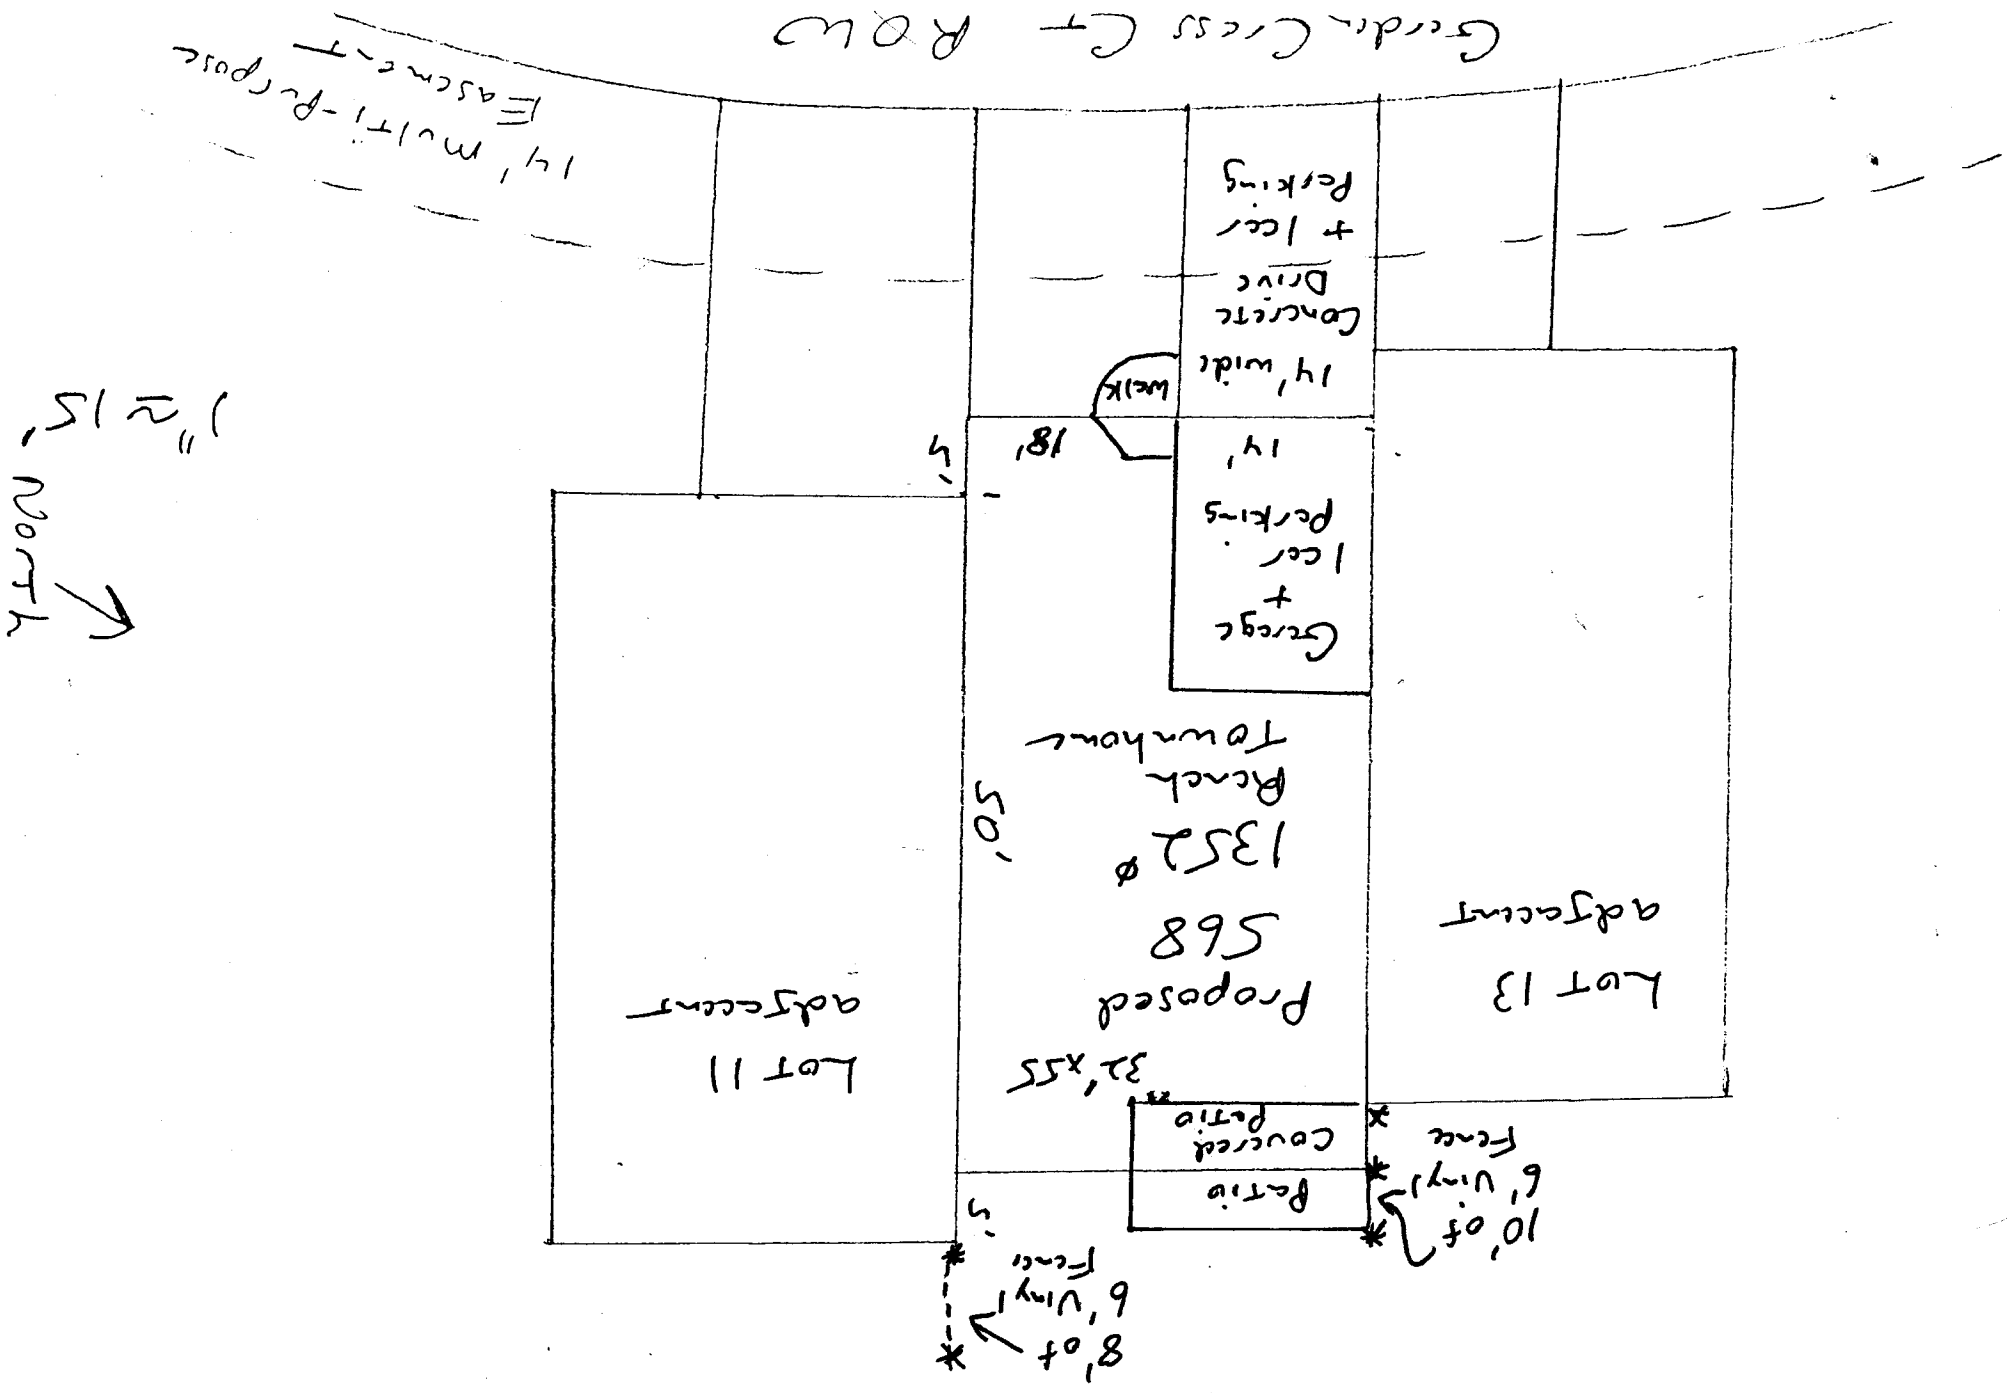 8' of
6' Vinyl
Fence
10' of
6' Vinyl
Fence
5'
Patio
Covered
Patio
32' x 55
LOT 11
adjacent
Proposed
568
1352 ф
Ranch
Townhome
LOT 13
adjacent
50'
Garage
+
1 car
Parking
14'
18'
5'
Walk
14' wide
Concrete
Drive
+ 1 car
Parking
North
1" ≈ 15'
14' Multi-Purpose
Easement
Garden Cress CT ROW